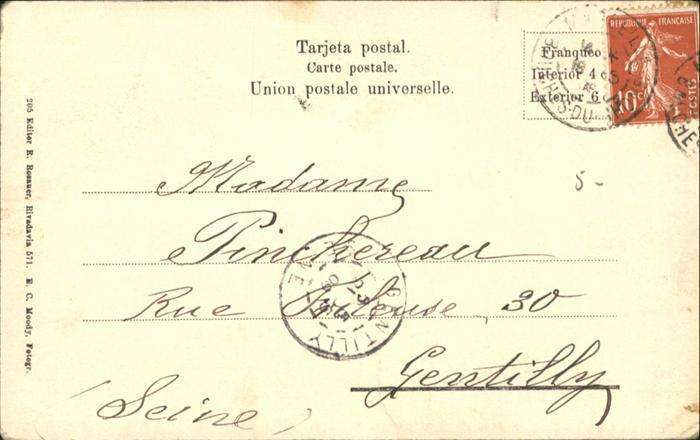 Tarjeta postal.
Carte postale.
Union postale universelle.
Franqueo
Interior 4
Exterior 6
REPUBLIQUE FRANÇAISE
10c
POSTES
5-
Madame
Pinchereau
Rue 30
Gentilly
(Seine)
GENTILLY
205 Editor R. Rosauer, Rivadavia 571. H. C. Moody, Fotogr.